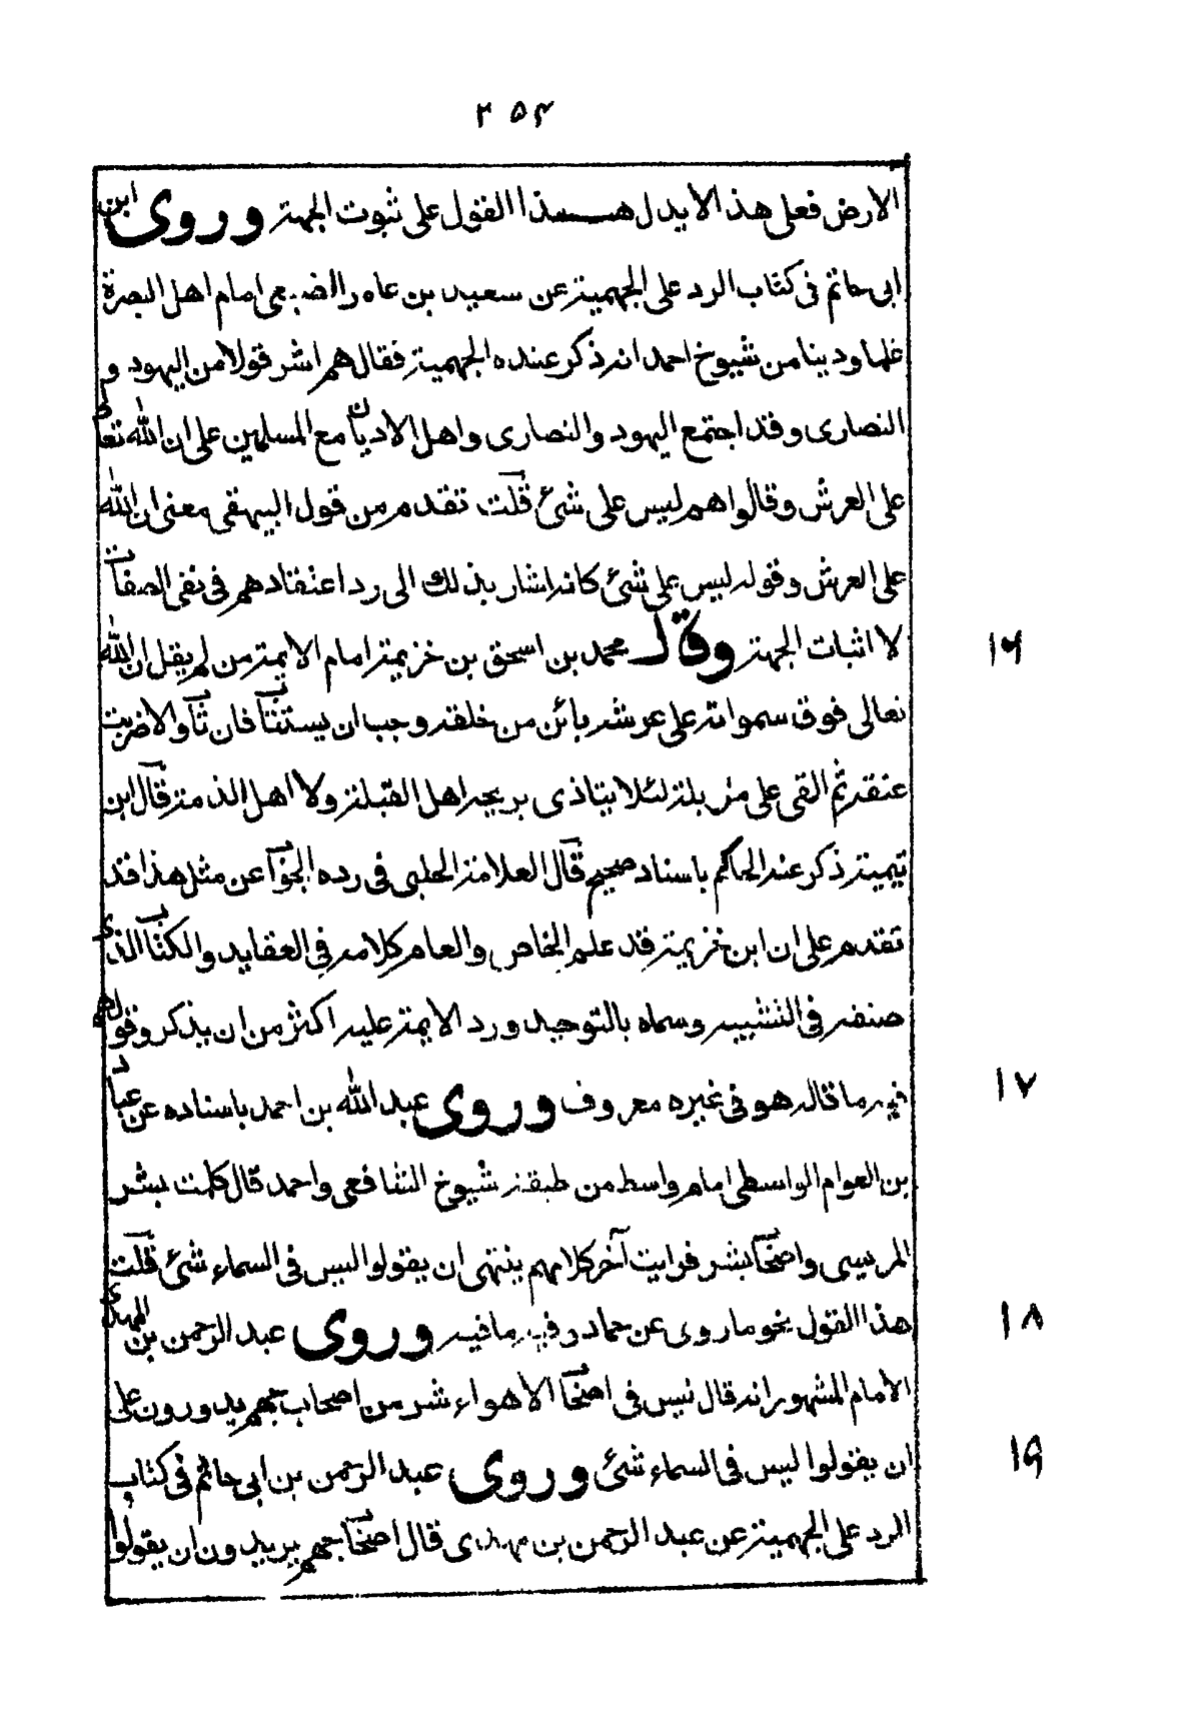 ٢٥٤
الارض فعلى هذا لا يدل هـــذا القول على ثبوت الجهة وروى ابن
ابى حاتم فى كتاب الرد على الجهمية عن سعيد بن عامر الضبعى امام اهل البصرة
علما ودينا من شيوخ احمد انه ذكر عنده الجهمية فقال هم اشر قولا من اليهود و
النصارى وقد اجتمع اليهود والنصارى واهل الاديان مع المسلمين على ان الله تعالى
على العرش وقالوا هم ليس على شئ قلت تقدم من قول البيهقى معنى ان الله
على العرش وقوله ليس على شئ كانه اشار بذلك الى رد اعتقادهم فى نفى الصفات
١٦ لا اثبات الجهة وقال محمد بن اسحق بن خزيمة امام الايمة من لم يقل ان الله
تعالى فوق سمواته على عرشه بائن من خلقه وجب ان يستتاب فان تاب والا ضربت
عنقه ثم القى على مزبلة لئلا يتاذى بريحه اهل القبلة ولا اهل الذمة قال ابن
تيمية ذكر عنه الحاكم باسناد صحيح قال العلامة الحلبى فى رده الجواب عن مثل هذا قد
تقدم على ان ابن خزيمة قد علم الخاص والعام كلامه فى العقايد والكتاب الذى
صنفه فى التشبيه وسماه بالتوحيد ورد الايمة عليه اكثر من ان يذكر وقولهم
١٧ فيه ما قاله هو فى غيره معروف وروى عبد الله بن احمد باسناده عن عباد
بن العوام الواسطى امام واسط من طبقة شيوخ الشافعى واحمد قال كلمت بشر
المريسى واصحاب بشر فرايت آخر كلامهم ينتهى ان يقولوا ليس فى السماء شئ قلت
١٨ هذا القول نحو ما روى عن حماد وفيه ما فيه وروى عبد الرحمن بن المهدى
الامام المشهور انه قال ليس فى اصحاب الاهواء شر من اصحاب جهم يدورون على
١٩ ان يقولوا ليس فى السماء شئ وروى عبد الرحمن بن ابى حاتم فى كتاب
الرد على الجهمية عن عبد الرحمن بن مهدى قال اصحاب جهم يريدون ان يقولوا